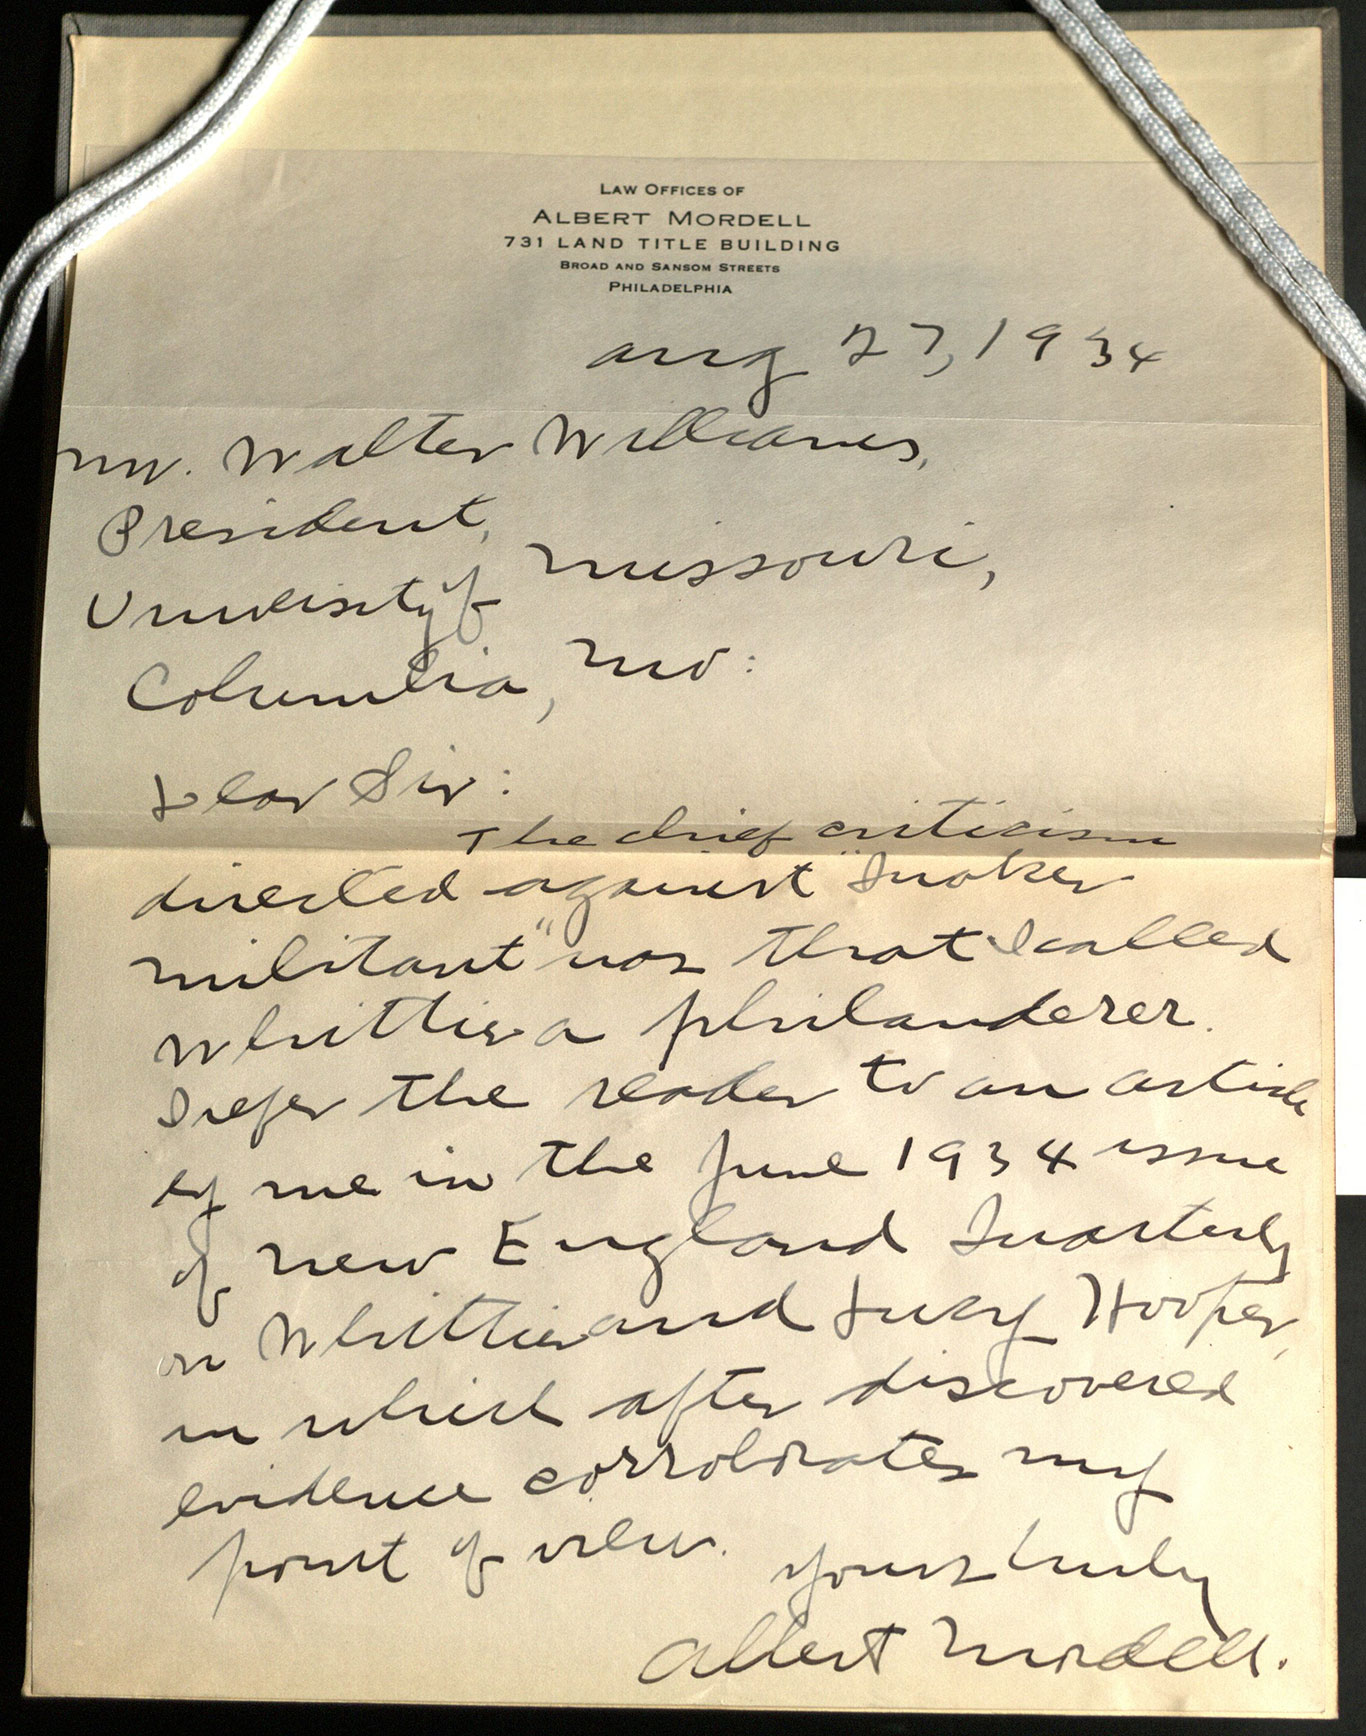 LAW OFFICES OF
ALBERT MORDELL
731 LAND TITLE BUILDING
BROAD AND SANSOM STREETS
PHILADELPHIA
Aug 27, 1934
Mr. Walter Williams,
President,
University of Missouri,
Columbia, Mo:
Dear Sir:
The chief criticism
directed against "Quaker
Militant" was that I called
Whittier a philanderer.
I refer the reader to an article
by me in the June 1934 issue
of New England Quarterly
on Whittier and Lucy Hooper,
in which after discovered
evidence corroborates my
point of view.
Yours truly
Albert Mordell.